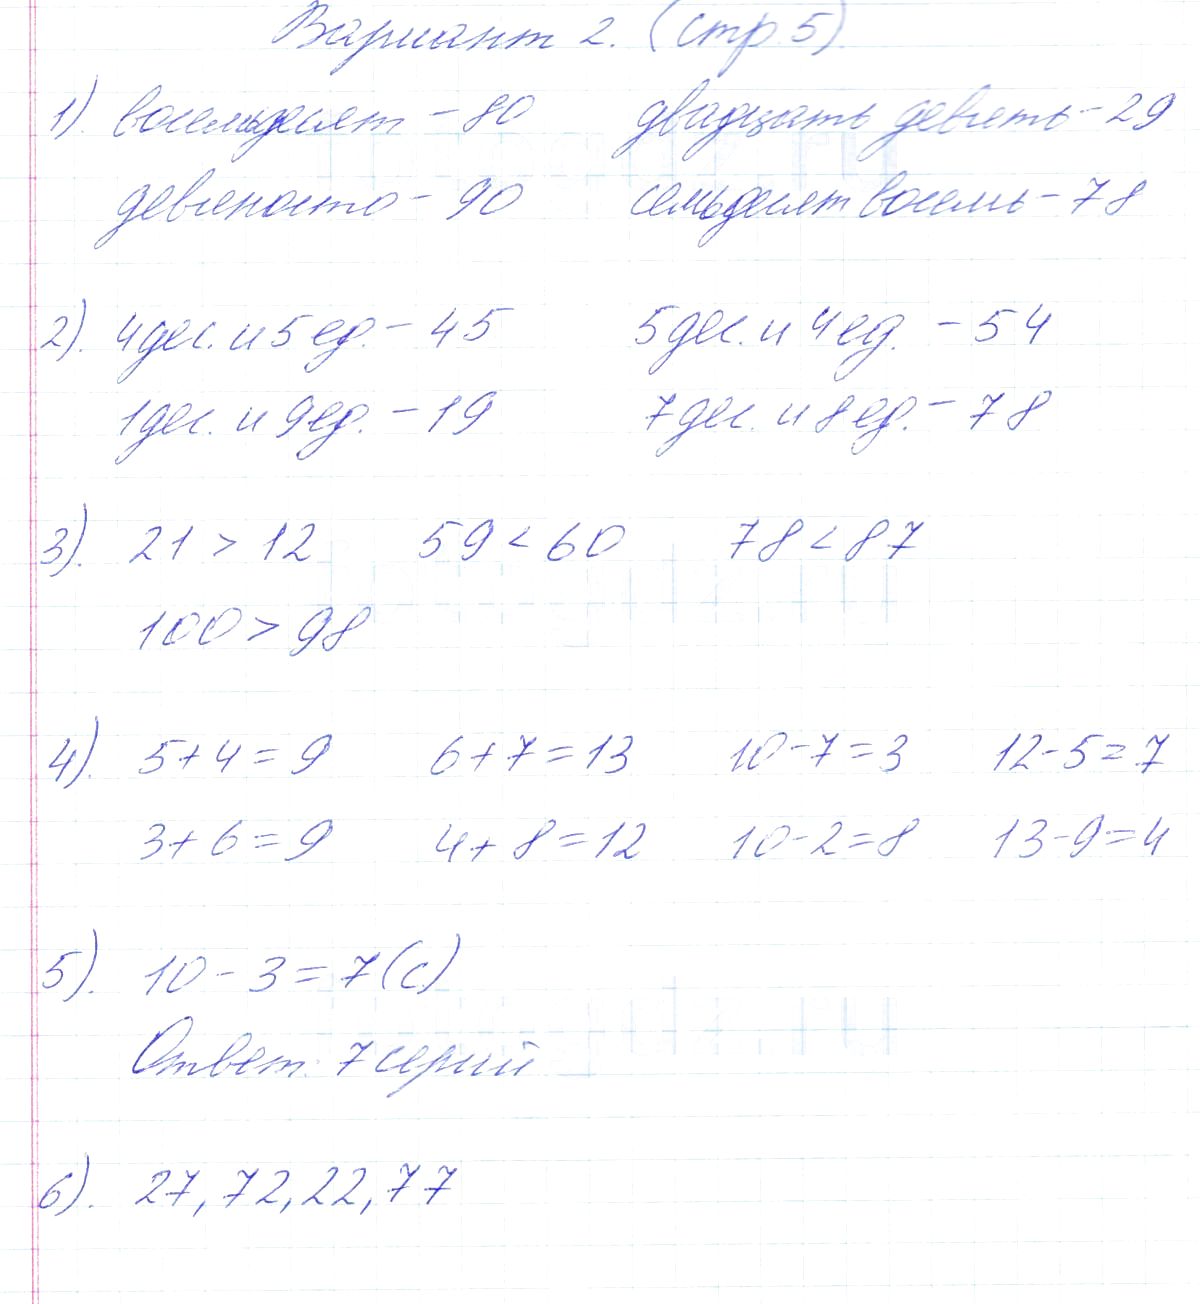 Вариант 2. (стр 5)
1). восемьдесят - 80 двадцать девять - 29
девяносто - 90 семьдесят восемь - 78
2). 4 дес. и 5 ед. - 45 5 дес. и 4 ед. - 54
1 дес. и 9 ед. - 19 7 дес. и 8 ед. - 78
3). 21 > 12 59 < 60 78 < 87
100 > 98
4). 5+4=9 6+7=13 10-7=3 12-5=7
3+6=9 4+8=12 10-2=8 13-9=4
5). 10-3=7(с)
Ответ: 7 серий
6). 27, 72, 22, 77